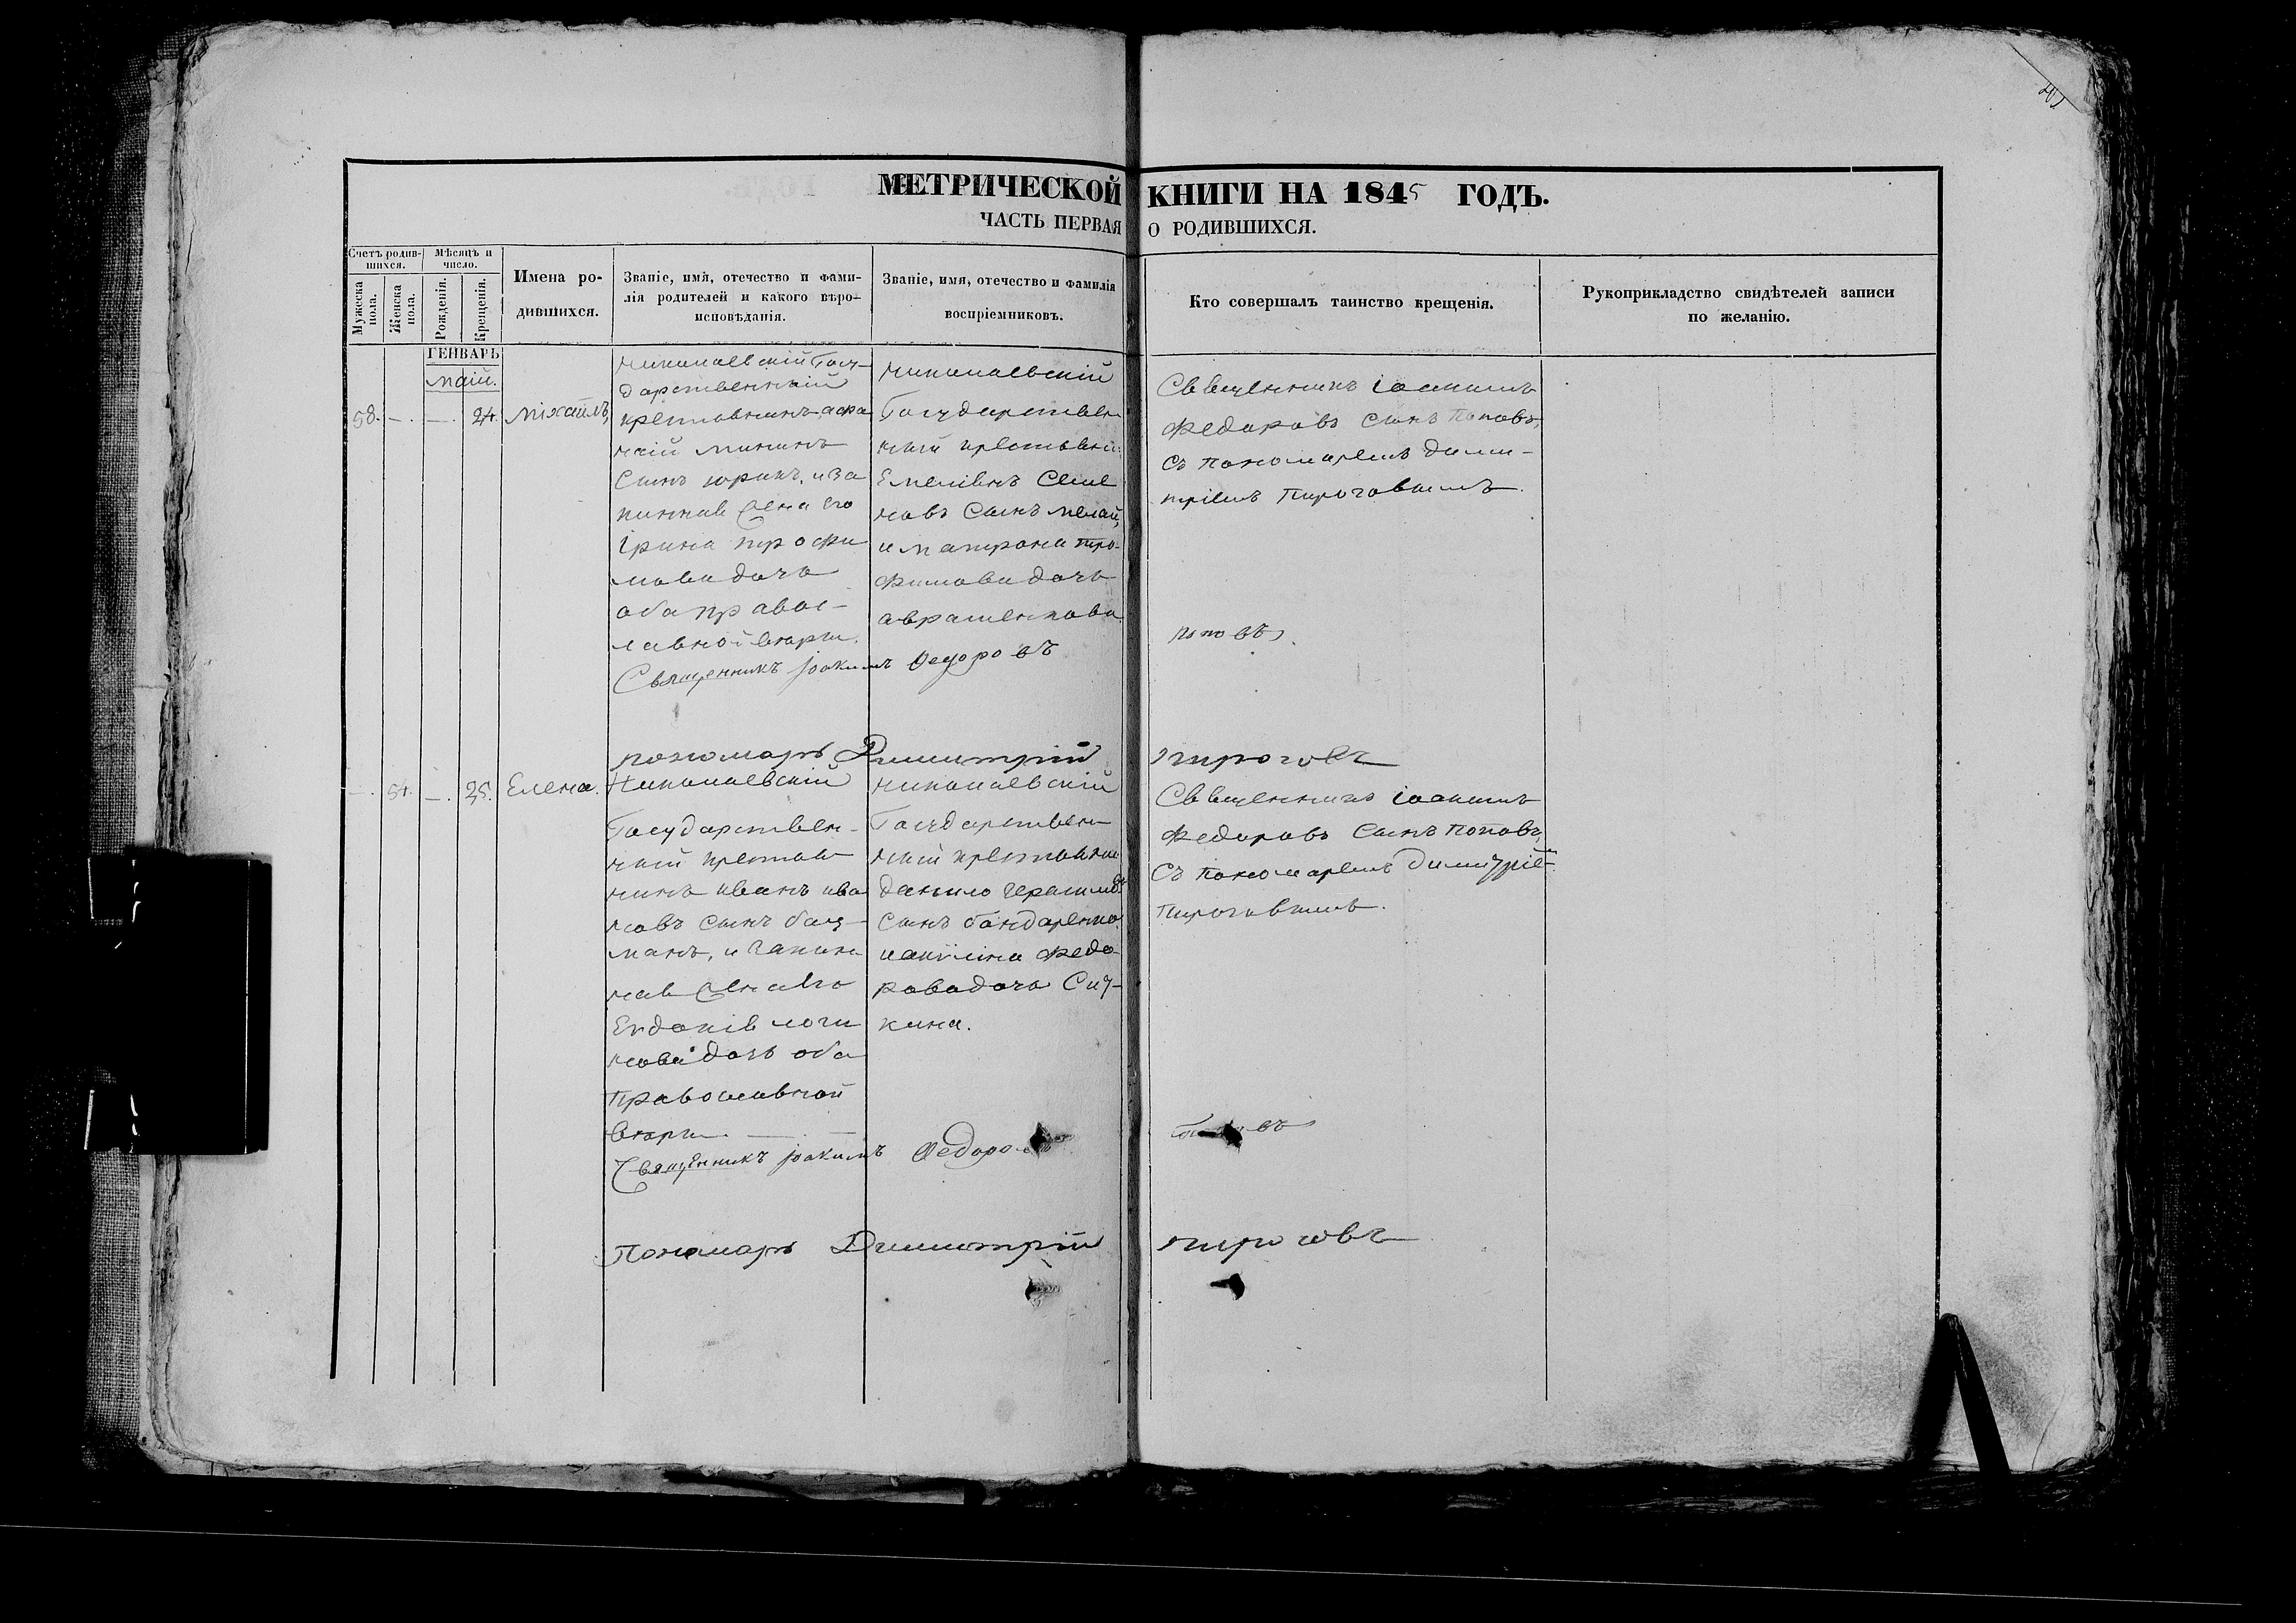 МЕТРИЧЕСКОЙ КНИГИ НА 1845 ГОДЪ.
ЧАСТЬ ПЕРВАЯ О РОДИВШИХСЯ.
Счетъ родив-
шихся.
Мужеска
пола.
Женска
пола.
Мѣсяцъ и
число.
Рожденія.
Крещенія.
Имена ро-
дившихся.
Званіе, имя, отечество и фами-
лія родителей и какого вѣро-
исповѣданія.
Званіе, имя, отечество и фамилія
воспріемниковъ.
Кто совершалъ таинство крещенія.
Рукоприкладство свидѣтелей записи
по желанію.
ГЕНВАРЬ
маій.
58. —. —. 24. Міхаилъ,
николаевскій Госу-
дарственный
крестьянинъ афа
насій мининъ
сынъ юринъ, и за
жена его
Ірина трофи
мова дочь
оба правос-
лавной вѣры.
николаевскій
Государствен
ный крестьянин
Емеліянъ Семе
новъ сынъ
и матрона тро-
фимова дочь
авраменкова.
Священникъ іоакимъ
Федоровъ сынъ Поповъ,
съ пономаремъ дими-
тріемъ Пироговымъ.
Священникъ іоакимъ Федоровъ поповъ.
пономарь Димитрій пироговъ
—. 54. —. 25. Елена.
Николаевскій
Государствен-
ный крестья
нинъ иванъ ива
новъ сынъ
манъ, и законна
жена его
Евдокія логи
нова дочь оба
Православной
вѣры.
николаевскій
Государствен
ный крестьянин
данило герасимов
сынъ бондаренко
и акилина федо
рова дочь
кина.
Священникъ іоакимъ
Федоровъ сынъ поповъ,
съ пономаремъ димитріе-
пироговымъ.
Священникъ іоакимъ Федоро въ
Пономарь Димитрій пироговъ